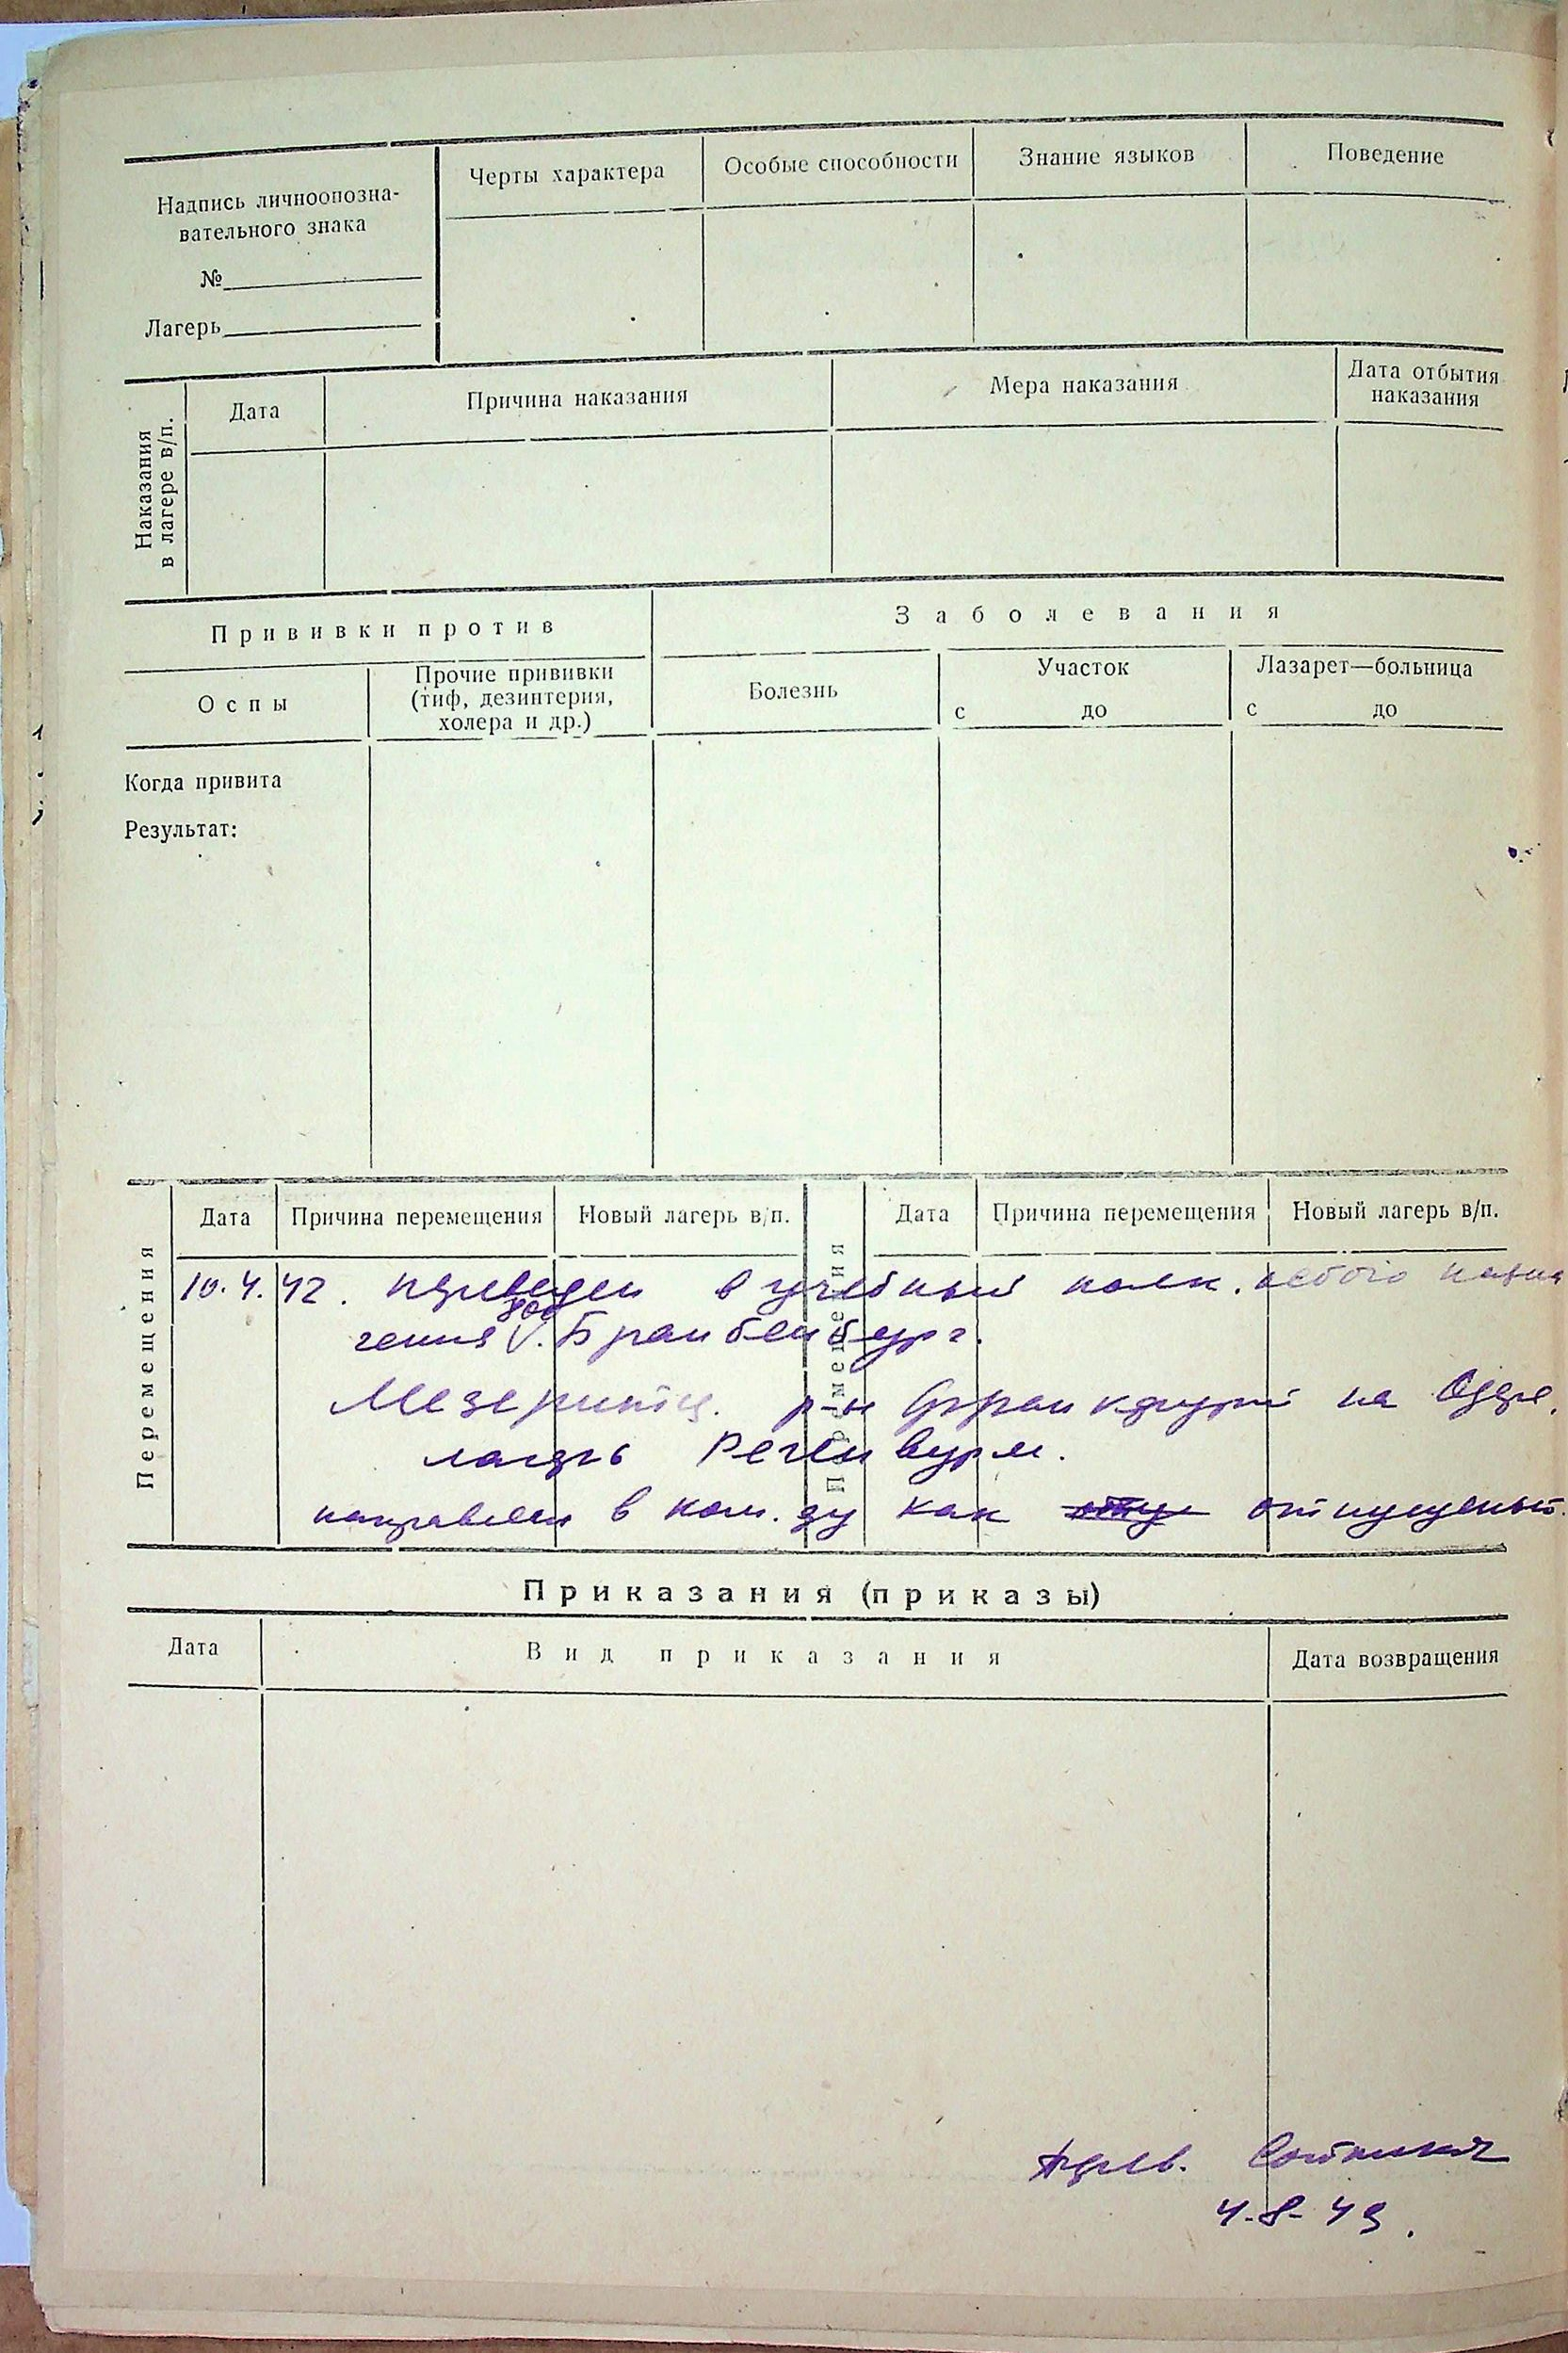 Надпись личноопозна-
вательного знака
№
Лагерь
Черты характера
Особые способности
Знание языков
Поведение
Наказания
в лагере в/п.
Дата
Причина наказания
Мера наказания
Дата отбытия
наказания
Прививки против
Заболевания
Оспы
Прочие прививки
(тиф, дезинтерия,
холера и др.)
Болезнь
Участок
с до
Лазарет—больница
с до
Когда привита
Результат:
Перемещения
Дата
Причина перемещения
Новый лагерь в/п.
Перемещения
Дата
Причина перемещения
Новый лагерь в/п.
10.4.42. переведен в учебный полк. особого назна
800
чения V. Бранбенбург.
Мезеритц. р-н Франкфурт на Одере,
лагерь Регенвурм.
направлен в ком-ду как отпущеный.
Приказания (приказы)
Дата
Вид приказания
Дата возвращения
4-8-49.